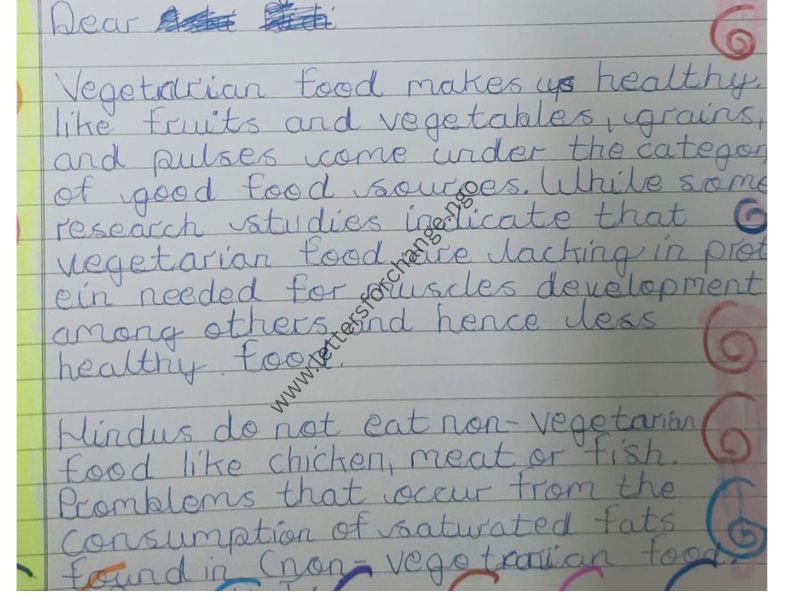 Dear
Vegetarian food makes us healthy.
like fruits and vegetables, grains,
and pulses come under the categor
of good food sources. While some
research studies indicate that
vegetarian food are lacking in prot
ein needed for muscles development
among others and hence less
healthy food.
Hindus do not eat non-vegetarian
food like chicken, meat or fish.
Promblems that occur from the
consumption of saturated fats
found in (non-vegetraiian food.
www.lettersforchange.ngo